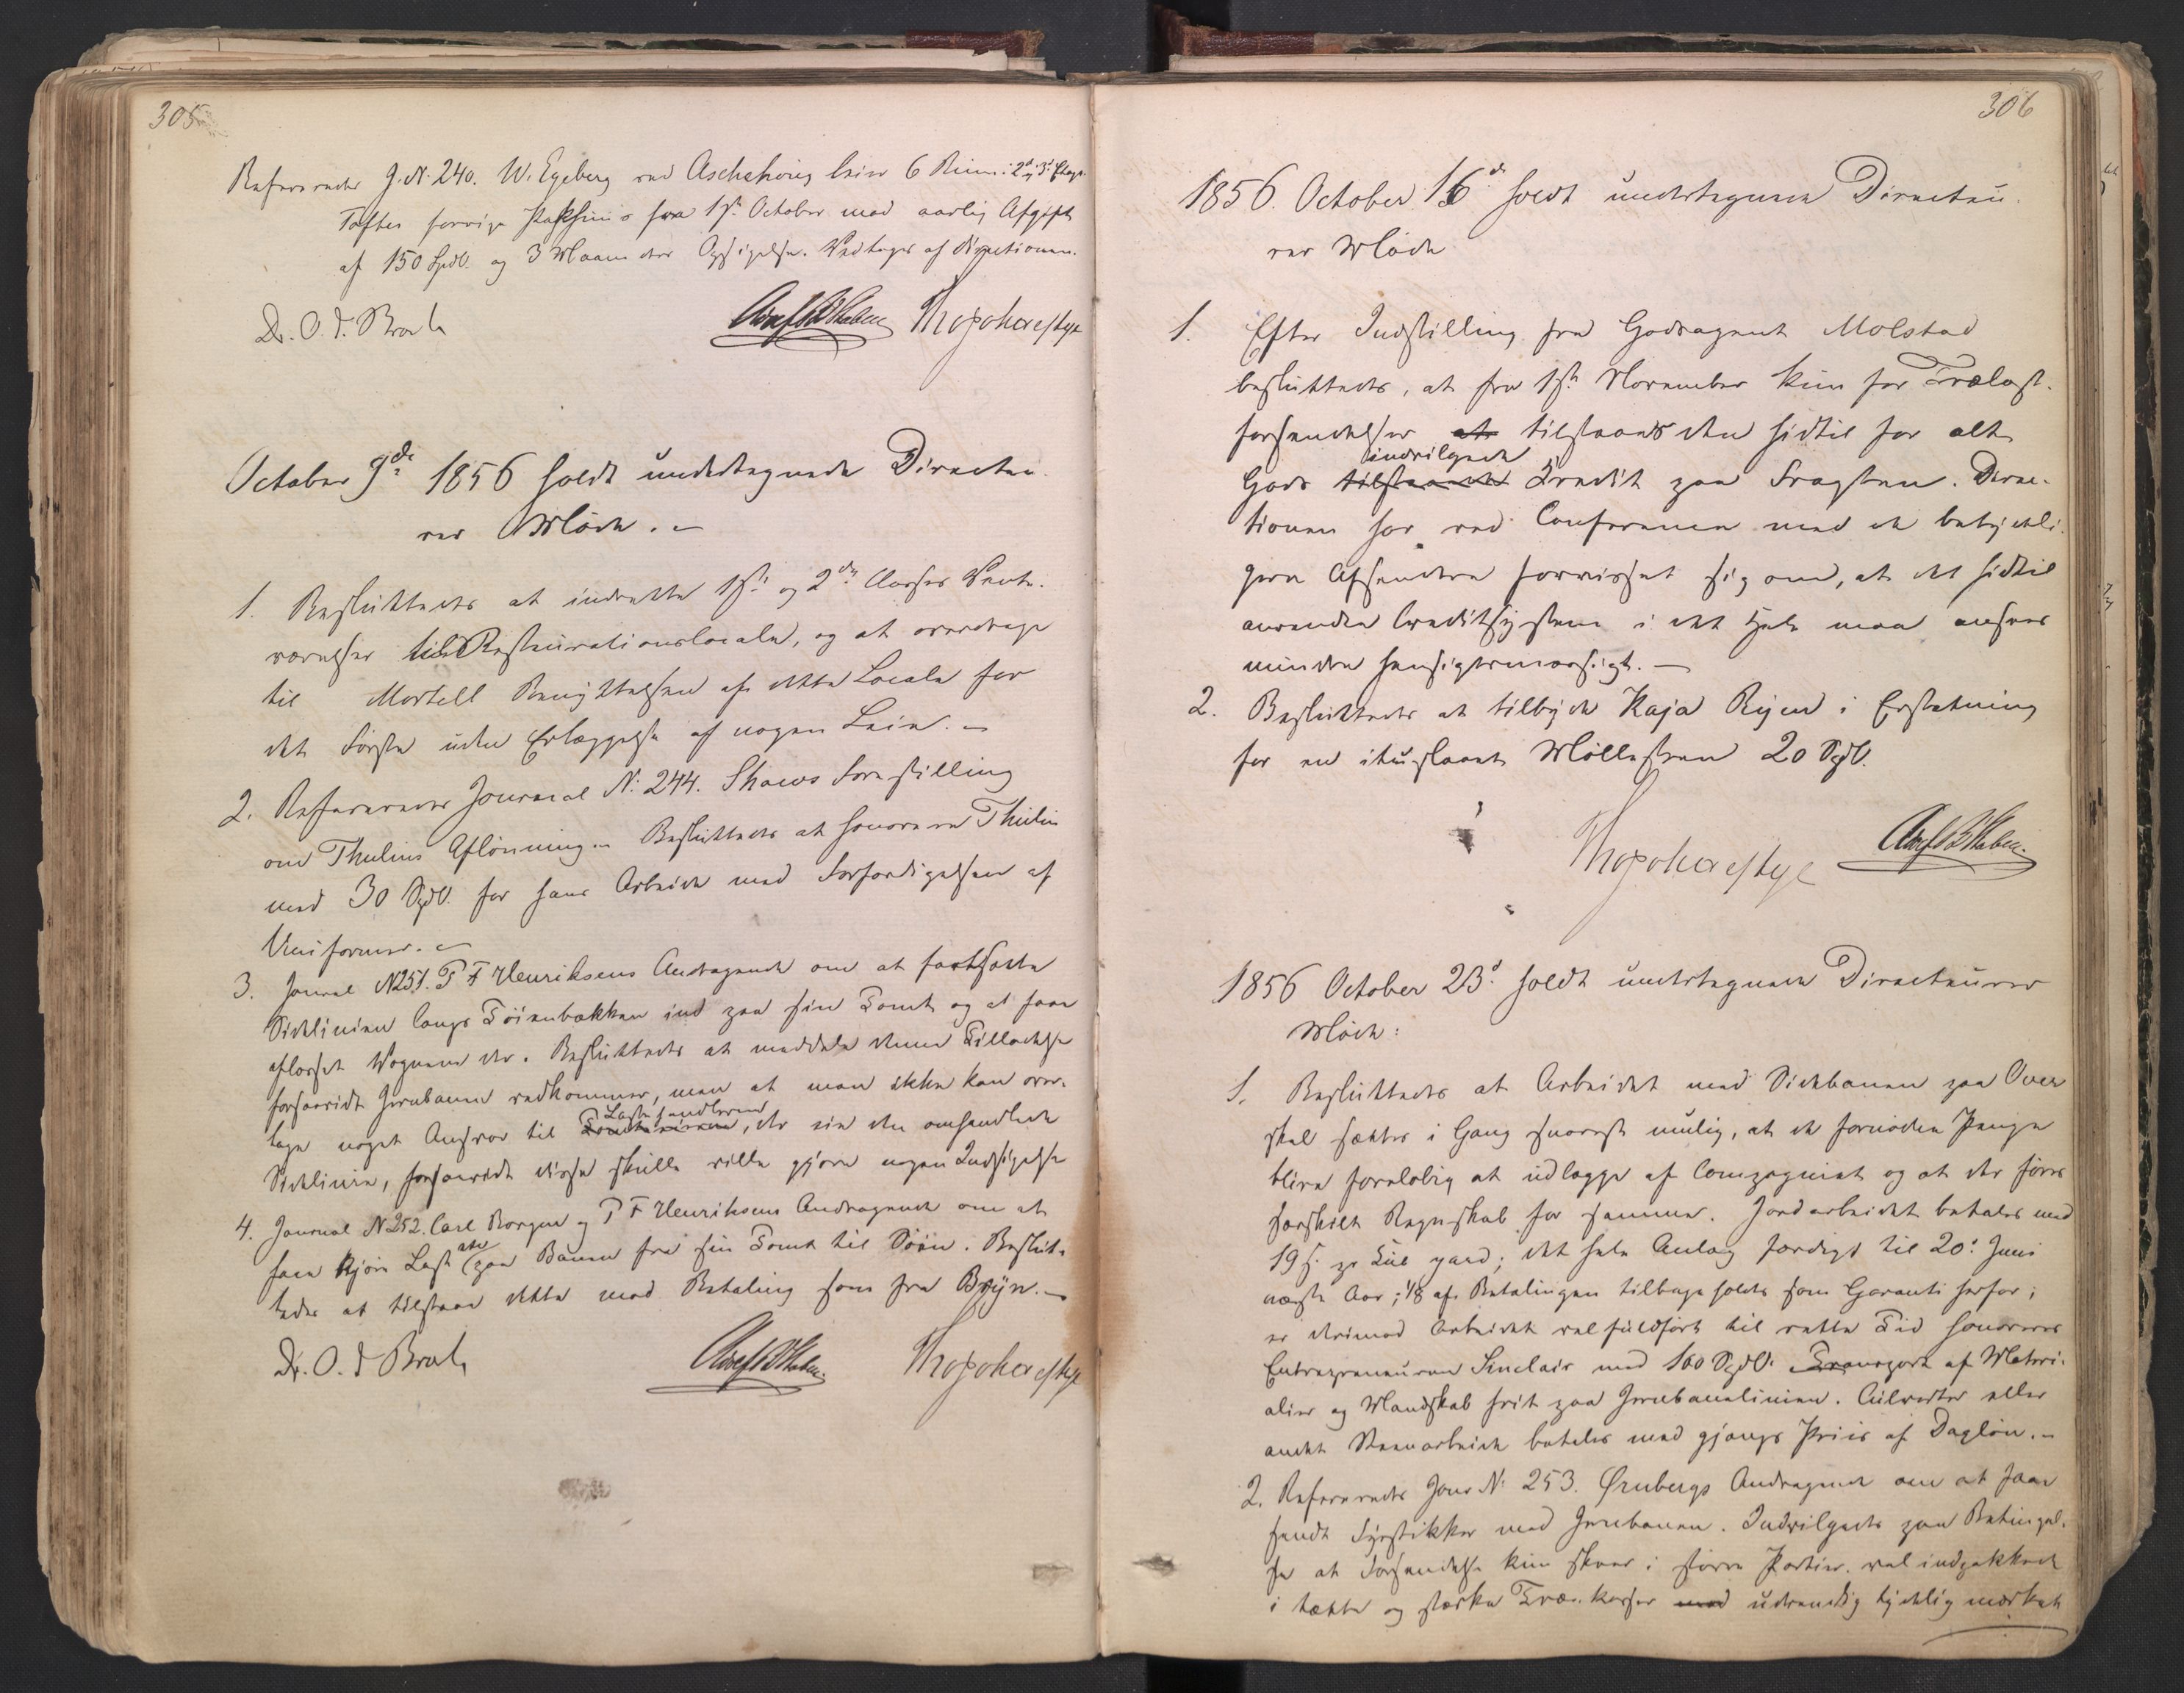 305
Refereredes J. N. 240. W. Egeberg ved Aschehoug leier 6 Rum i 2d og 3d Etage
Toftes forrige fra 1ste October mod aarlig Afgift
af 150 Spdl. og 3 Maaneders Opsigelse. Vedtages af Directionen.
Dr. O. J. Broch
October 9de 1856 holdt undertegnede Directeu
rer Möde. –
1. Besluttedes at indrette 1ste og 2den Classes Vente-
værelser til Restaurationslocale, og at overdrage
til Martell Benyttelsen af dette Locale for
det Förste uden Erlæggelse af nogen Leie. –
2. Refereredes Journal N: 244. Shaws Forestilling
om Thulins Aflönning. – Besluttedes at honorere Thulin
med 30 Spdl. for hans Arbeide med Forfærdigelsen af
Uniformer. –
3. Journal N 251. P F Henriksens Andragende om at fortsætte
Sidelinien langs Töienbækken ind paa sin Tomt og at faae
aflæsset Vognene der. Besluttedes at meddele denne Tilladelse
forsaavidt Jernbanen vedkommer, men at man ikke kan over-
tage noget Ansvar til Lasthandlerne, der eie den omhandlede
Sidelinie, forsaavidt disse skulle ville gjöre nogen Indsigelse
4. Journal N 252. Carl Borgen og P F Henriksens Andragende om at
faae kjöre Last paa Banen fra sin Tomt til Söen. Beslut-
tedes at tilstaae dette mod Betaling som fra Bryn. –
Dr. O. J Broch
306
1856. October 16de holdt undertegnede Directeu-
rer Möde
1. Efter Indstilling fra Godsagent Molstad
besluttedes, at fra 1ste November kun for Trælast-
forsendelser at tilstaaes den hidtil for alt
indvilgede
Gods tilstaaede Credit paa Fragten. Direc-
tionen har ved Conference med de betydeli-
gere Afsendere forvisset sig om, at det hidtil
anvendte Creditsystem i det Hele maa ansees
mindre hensigtsmæssigt. –
2. Besluttedes at tilbyde Kaja Ryen i Erstatning
for en ituslaaet Möllesteen 20 Spdl.
1856 October 23d holdt undertegnede Directeurer
Möde:
1. Besluttedes at Arbeidet med Sidebanen paa Oven
skal sættes i Gang snarest mulig, at de fornödne Penge
blive forelöbig at udlægge af Compagniet og at der föres
særskilt Regnskab for samme. Jordarbeidet betales med
19 ß. pr Cub yard; det hele Anlæg færdigt til 20de Juni
næste Aar; 1/8 af Betalingen tilbageholdes som Garanti herfor;
er derimod Arbeidet vel fuldfört til rette Tid honoreres
Entrepreneuren Sinclair med 100 Spdl. Transport af Materi-
alier og Mandskab frit paa Jernbanelinien. Culverter eller
andet Steenarbeide betales med gjængs Priis af Daglön. –
2. Refereredes Jour N: 253. Ørnbergs Andragende om at faae
sendt Fyrstikker med Jernbanen. Indvilgedes paa Betingel-
se at Forsendelse kun skeer i större Partier, vel indpakkede
i tætte og stærke Trækasser med udvendig tydelig mærket